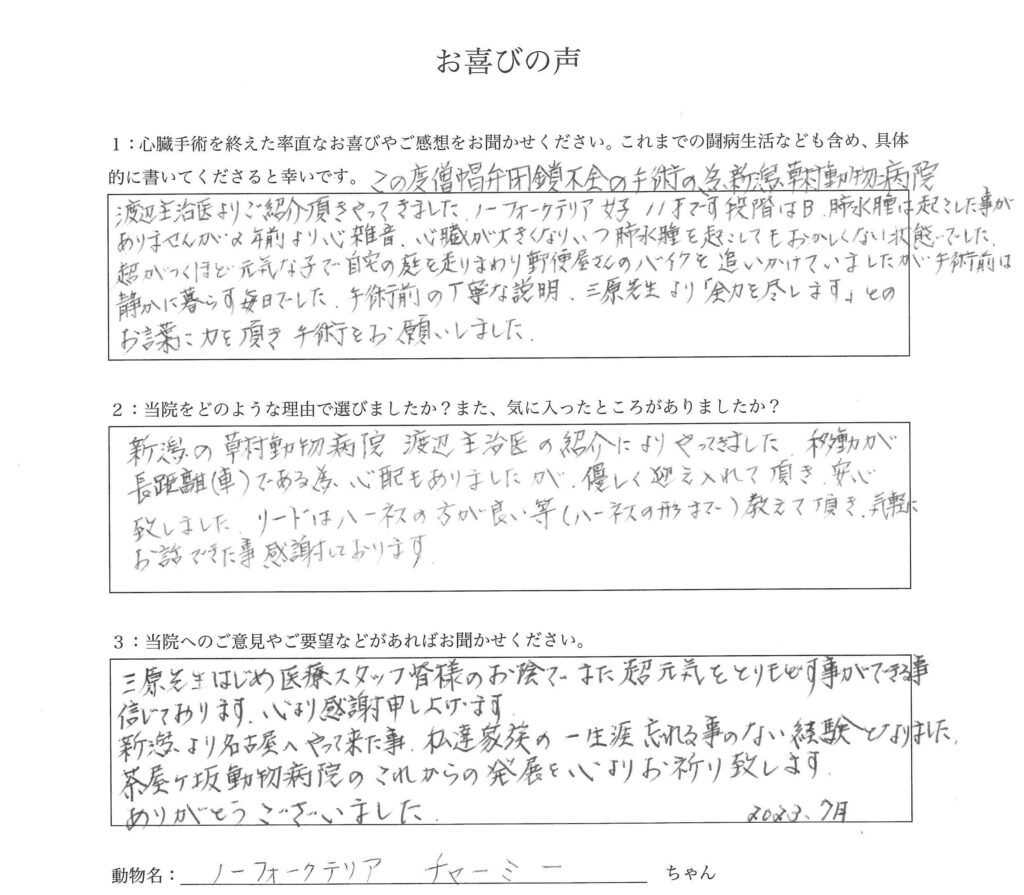 お喜びの声
1：心臓手術を終えた率直なお喜びやご感想をお聞かせください。これまでの闘病生活なども含め、具体
的に書いてくださると幸いです。この度僧帽弁閉鎖不全の手術の為、新潟草村動物病院
渡辺主治医よりご紹介頂きやってきました。ノーフォークテリア 女子 11才です 段階はB．肺水腫は起こした事が
ありませんが2年前より心雑音、心臓が大きくなりいつ肺水腫を起こしてもおかしくない状態でした。
超がつくほど元気な子で自宅の庭を走りまわり郵便屋さんのバイクを追いかけていましたが手術前は
静かに暮らす毎日でした。手術前の丁寧な説明、三原先生より「全力を尽します」との
お言葉に力を頂き手術をお願いしました。
2：当院をどのような理由で選びましたか？また、気に入ったところがありましたか？
新潟の草村動物病院 渡辺主治医の紹介によりやってきました 移動が
長距離(車)である為、心配もありましたが、優しく迎え入れて頂き、安心
致しました。リードはハーネスの方が良い等(ハーネスの形まで)教えて頂き、気軽に
お話できた事感謝しております
3：当院へのご意見やご要望などがあればお聞かせください。
三原先生はじめ医療スタッフ皆様のお陰で、また超元気をとりもどす事ができる事
信じております。心より感謝申し上げます
新潟より名古屋へやって来た事、私達家族の一生涯忘れる事のない経験となりました。
茶屋ヶ坂動物病院のこれからの発展を心よりお祈り致します．
ありがとうございました． 2023．7月
動物名：ノーフォークテリア チャーミー ちゃん